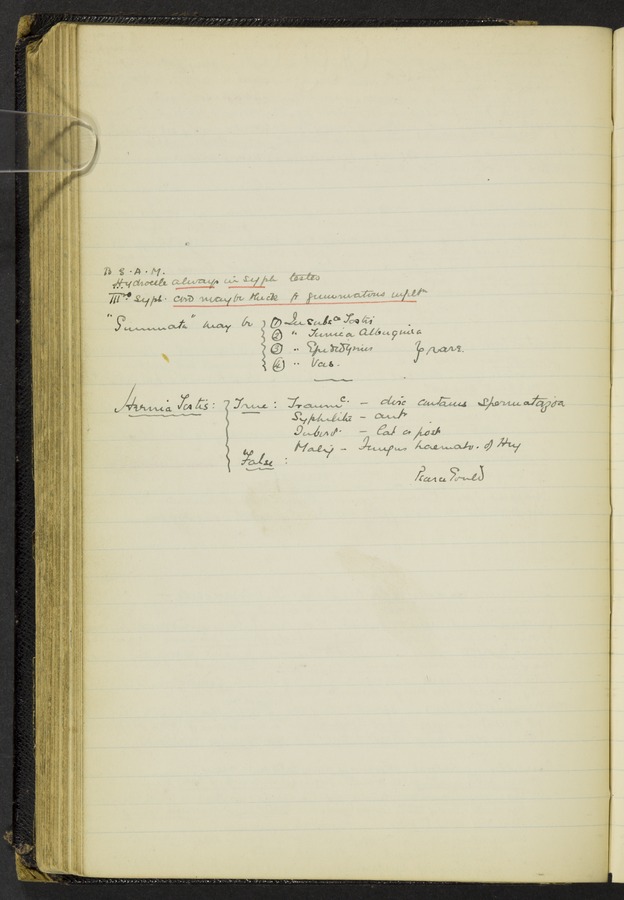 S.A.M.
Hydrocele always in syph testes
IIIʳʸ Syph. cord may be thick fr gummatous infiltⁿ
"Gummata" may be { ① In subsᶜᵉ Testis
② " Tunica Albuginea
③ " Epididymis } rare.
④ " Vas.
Hernia Testis: { True: Traumᶜ. – disc contains Spermatozoa
Syphilitic – antʳ
Tubercʳ. – lat or post
Malig – Fungus haemato. of Hey
False:
Pearce Gould